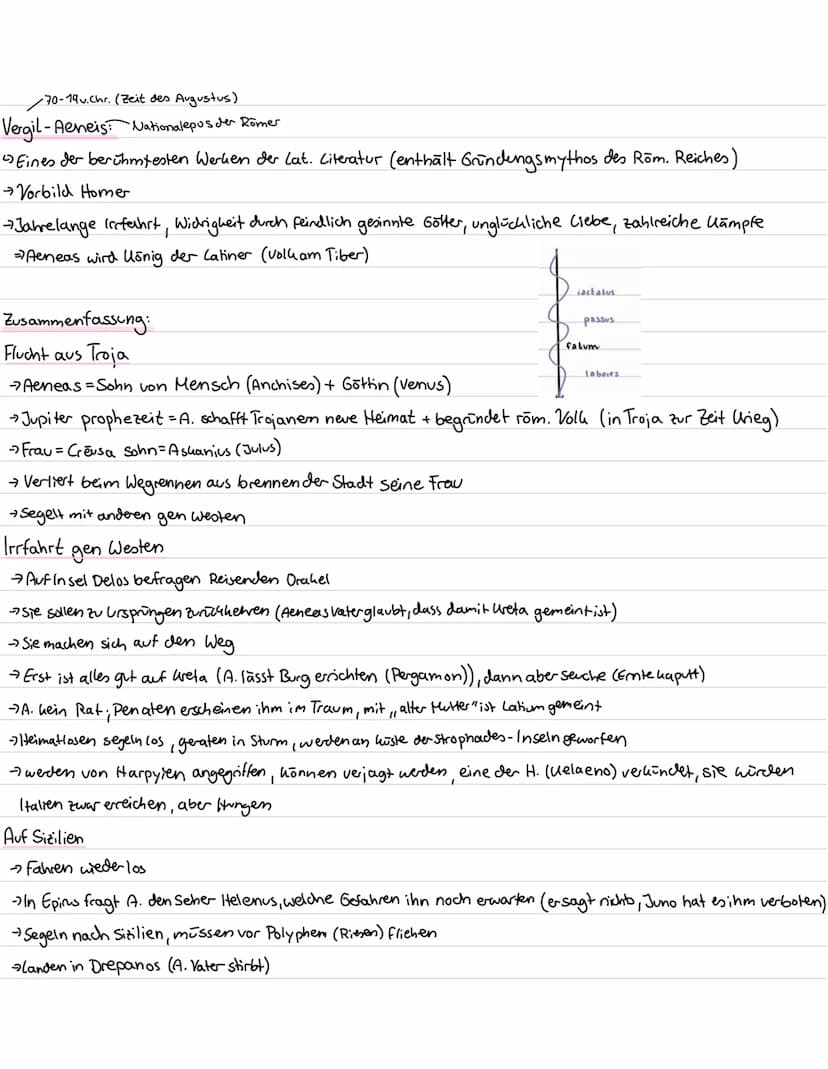 70-19v.Chr. (Zeit des Augustus)
Vergil-Aeneis: Nationalepos der Römer
↪ Eines der berühmtesten Werken der Lat. Literatur (enthält Gründungsmythos des Röm. Reiches)
→ Vorbild Homer
→ Jahrelange Irrfahrt, Widrigkeit durch feindlich gesinnte Götter, unglückliche Liebe, zahlreiche Kämpfe
⇒ Aeneas wird König der Latiner (Volk am Tiber)
iactatus
passus
fatum
labores
Zusammenfassung:
Flucht aus Troja
→ Aeneas = Sohn von Mensch (Anchises) + Göttin (Venus)
→ Jupiter prophezeit = A. schafft Trojanern neue Heimat + begründet röm. Volk (in Troja zur Zeit Krieg)
→ Frau = Crëusa Sohn = Askanius (Julus)
→ Verliert beim Wegrennen aus brennender Stadt seine Frau
→ Segelt mit anderen gen Westen
Irrfahrt gen Westen
→ Auf Insel Delos befragen Reisenden Orakel
→ Sie sollen zu Ursprüngen zurückkehren (Aeneas Vater glaubt, dass damit Kreta gemeint ist)
→ Sie machen sich auf den Weg
→ Erst ist alles gut auf Kreta (A. lässt Burg errichten (Pergamon)), dann aber Seuche (Ernte kaputt)
→ A. kein Rat; Penaten erscheinen ihm im Traum, mit „alter Mutter" ist Latium gemeint
→ Heimatlosen segeln los, geraten in Sturm, werden an Küste der Strophades-Inseln geworfen
→ werden von Harpyien angegriffen, können verjagt werden, eine der H. (Kelaeno) verkündet, sie würden
Italien zwar erreichen, aber Hungern
Auf Sizilien
→ Fahren wieder los
→ In Epirus fragt A. den Seher Helenus, welche Gefahren ihn noch erwarten (er sagt nichts, Juno hat es ihm verboten)
→ Segeln nach Sizilien, müssen vor Polyphem (Riesen) fliehen
→ Landen in Drepanos (A. Vater stirbt)